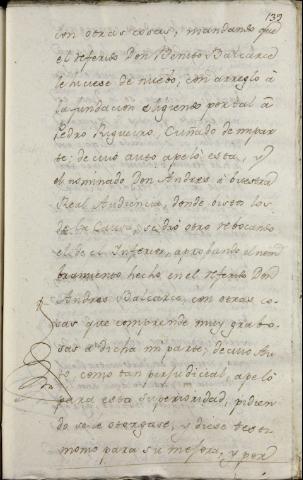 139
con otras cosas, mandando que
el referido Don Benito Balcarce
le hiciese de nuebo, con arreglo á
la fundacion eligiendo por tal á
Pedro Rigueiro, Cuñado de mi par
te; de cuio auto apeló esta, y
el nominado Don Andres á vuestra
Real Audiencia, donde visto los
de la Causa, se dió otro rebocando
el de el Inferior, aprobando el nom
bramiento hecho en el referido Don
Andres Balcarce, con otras co
sas que comprende muy grabo
sas á dicha mi parte; de cuio Au
to, como tan perjudicial, apeló
para esta Superioridad, pidien
do se le otorgase, y diese testi
monio para su mejora, y por